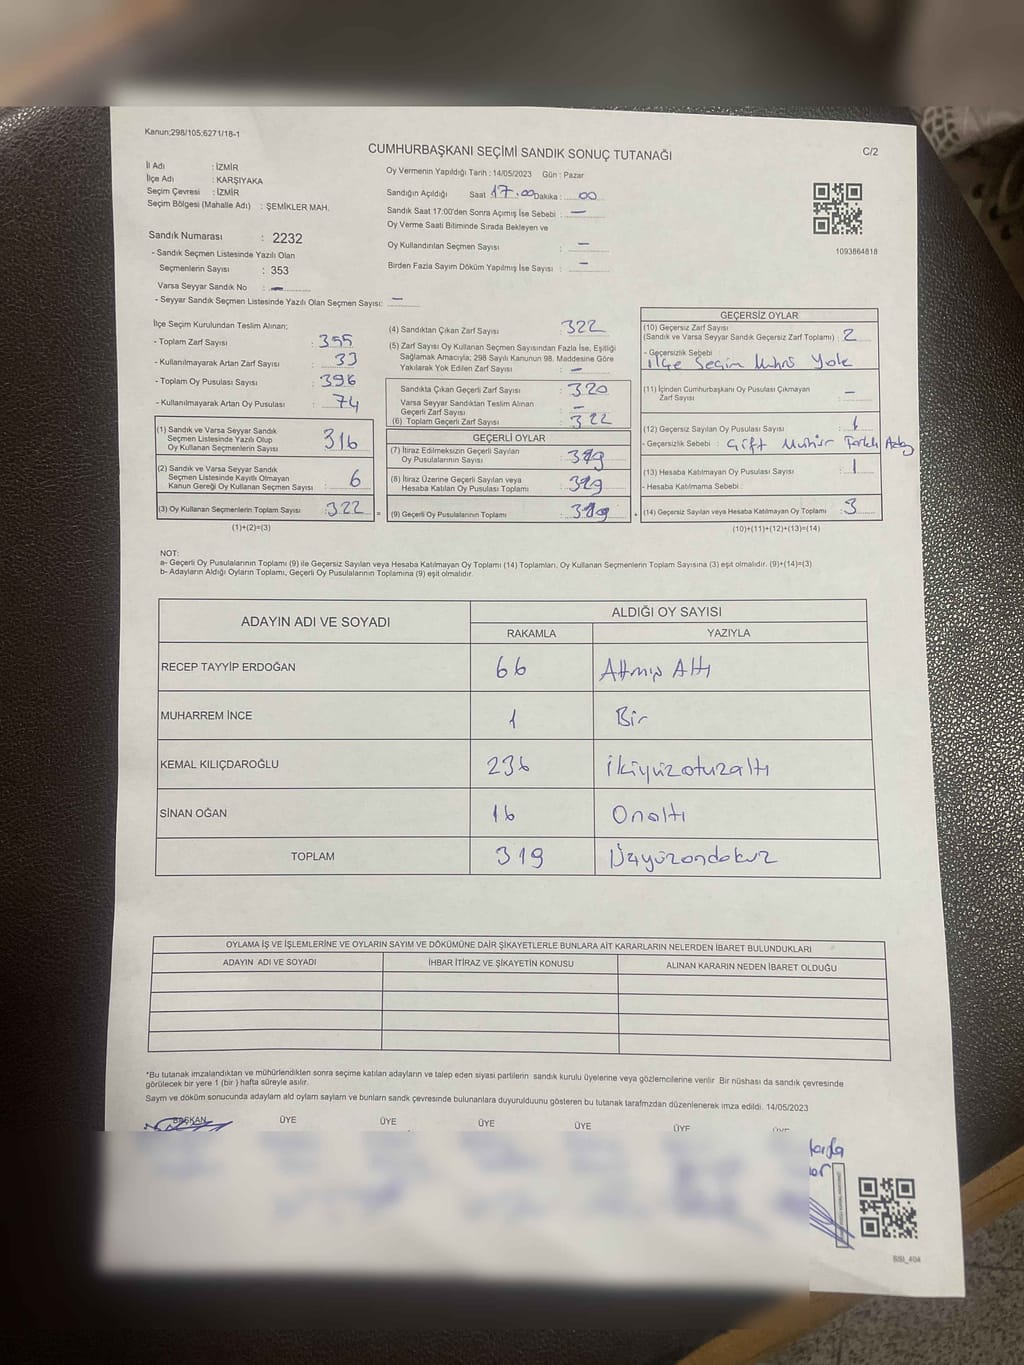 Kanun;298/105;6271/18-1
CUMHURBAŞKANI SEÇİMİ SANDIK SONUÇ TUTANAĞI
C/2
İl Adı : İZMİR
İlçe Adı : KARŞIYAKA
Seçim Çevresi : İZMİR
Seçim Bölgesi (Mahalle Adı) : ŞEMİKLER MAH.
Sandık Numarası : 2232
- Sandık Seçmen Listesinde Yazılı Olan
Seçmenlerin Sayısı : 353
Varsa Seyyar Sandık No : -
- Seyyar Sandık Seçmen Listesinde Yazılı Olan Seçmen Sayısı: -
Oy Vermenin Yapıldığı Tarih : 14/05/2023 Gün : Pazar
Sandığın Açıldığı Saat 17.00 Dakika : 00
Sandık Saat 17:00'den Sonra Açımış İse Sebebi : -
Oy Verme Saati Bitiminde Sırada Bekleyen ve
Oy Kullandırılan Seçmen Sayısı : -
Birden Fazla Sayım Döküm Yapılmış İse Sayısı : -
1093864818
İlçe Seçim Kurulundan Teslim Alınan;
- Toplam Zarf Sayısı : 355
- Kullanılmayarak Artan Zarf Sayısı : 33
- Toplam Oy Pusulası Sayısı : 396
- Kullanılmayarak Artan Oy Pusulası : 74
(1) Sandık ve Varsa Seyyar Sandık
Seçmen Listesinde Yazılı Olup
Oy Kullanan Seçmenlerin Sayısı : 316
(2) Sandık ve Varsa Seyyar Sandık
Seçmen Listesinde Kayıtlı Olmayan
Kanun Gereği Oy Kullanan Seçmen Sayısı : 6
(3) Oy Kullanan Seçmenlerin Toplam Sayısı : 322 =
(1)+(2)=(3)
(4) Sandıktan Çıkan Zarf Sayısı : 322
(5) Zarf Sayısı Oy Kullanan Seçmen Sayısından Fazla İse, Eşitliği
Sağlamak Amacıyla; 298 Sayılı Kanunun 98. Maddesine Göre
Yakılarak Yok Edilen Zarf Sayısı : -
Sandıkta Çıkan Geçerli Zarf Sayısı : 320
Varsa Seyyar Sandıktan Teslim Alınan
Geçerli Zarf Sayısı : -
(6) Toplam Geçerli Zarf Sayısı : 322
GEÇERLİ OYLAR
(7) İtiraz Edilmeksizin Geçerli Sayılan
Oy Pusulalarının Sayısı : 319
(8) İtiraz Üzerine Geçerli Sayılan veya
Hesaba Katılan Oy Pusulası Toplamı : 319
(9) Geçerli Oy Pusulalarının Toplamı : 319 +
GEÇERSİZ OYLAR
(10) Geçersiz Zarf Sayısı
(Sandık ve Varsa Seyyar Sandık Geçersiz Zarf Toplamı) : 2
- Geçersizlik Sebebi
İlçe Seçim Mührü Yok
(11) İçinden Cumhurbaşkanı Oy Pusulası Çıkmayan
Zarf Sayısı : -
(12) Geçersiz Sayılan Oy Pusulası Sayısı : 1
- Geçersizlik Sebebi : Çift Mühür Farklı Aday
(13) Hesaba Katılmayan Oy Pusulası Sayısı : 1
- Hesaba Katılmama Sebebi
(14) Geçersiz Sayılan veya Hesaba Katılmayan Oy Toplamı : 3
(10)+(11)+(12)+(13)=(14)
NOT:
a- Geçerli Oy Pusulalarının Toplamı (9) ile Geçersiz Sayılan veya Hesaba Katılmayan Oy Toplamı (14) Toplamları, Oy Kullanan Seçmenlerin Toplam Sayısına (3) eşit olmalıdır. (9)+(14)=(3)
b- Adayların Aldığı Oyların Toplamı, Geçerli Oy Pusulalarının Toplamına (9) eşit olmalıdır.
ADAYIN ADI VE SOYADI ALDIĞI OY SAYISI
RAKAMLA YAZIYLA
RECEP TAYYİP ERDOĞAN 66 Altmış Altı
MUHARREM İNCE 1 Bir
KEMAL KILIÇDAROĞLU 236 ikiyüzotuzaltı
SİNAN OĞAN 16 Onaltı
TOPLAM 319 Üçyüzondokuz
OYLAMA İŞ VE İŞLEMLERİNE VE OYLARIN SAYIM VE DÖKÜMÜNE DAİR ŞİKAYETLERLE BUNLARA AİT KARARLARIN NELERDEN İBARET BULUNDUKLARI
ADAYIN ADI VE SOYADI İHBAR İTİRAZ VE ŞİKAYETİN KONUSU ALINAN KARARIN NEDEN İBARET OLDUĞU
*Bu tutanak imzalandıktan ve mühürlendikten sonra seçime katılan adayların ve talep eden siyasi partilerin sandık kurulu üyelerine veya gözlemcilerine verilir Bir nüshası da sandık çevresinde
görülecek bir yere 1 (bir ) hafta süreyle asılır.
Sayım ve döküm sonucunda adaylam ald oylam saylam ve bunlarn sandk çevresinde bulunanlara duyurulduunu gösteren bu tutanak tarafmzdan düzenlenerek imza edildi. 14/05/2023
BAŞKAN ÜYE ÜYE ÜYE ÜYE ÜYE ÜYE